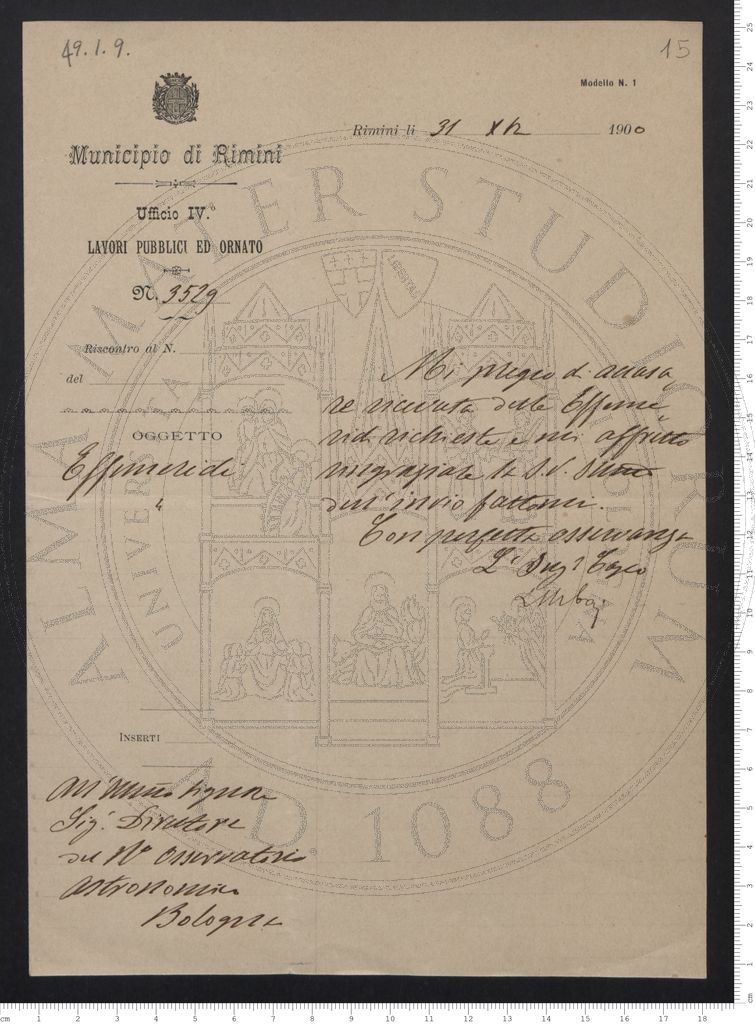 49.1.9.
15
Modello N. 1
Rimini li 31 XII 1900
Municipio di Rimini
Ufficio IV.º
LAVORI PUBBLICI ED ORNATO
N. 3529
Riscontro al N.
del
OGGETTO
Effemeridi
Mi pregio di accusa
re ricevuta delle Effeme
ridi richieste e mi affretto
ringraziare la S. V.
dell'invio fattomi.
Con perfetta osservanza
L' Ing.e Capo
INSERTI
All' Illmo Signore
Sig. Direttore
del Rº Osservatorio
Astronomico
Bologna
ALMA MATER STUDIORUM
A.D. 1088